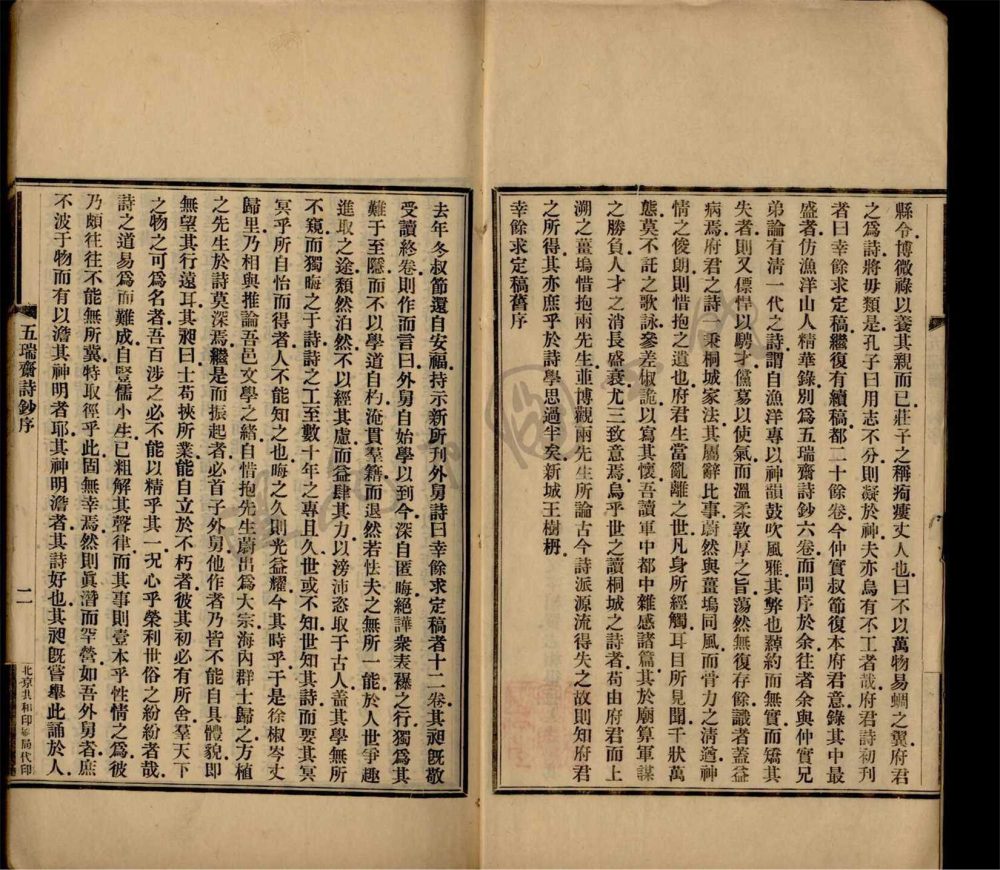 縣令博微祿以養其親而已莊子之稱痀僂丈人也曰不以萬物易蜩之翼府君
之爲詩將毋類是孔子曰用志不分則凝於神夫亦烏有不工者哉府君詩初刊
者曰幸餘求定稿繼復有續稿都二十餘卷今仲實叔節復本府君意錄其中最
盛者仿漁洋山人精華錄別爲五瑞齋詩鈔六卷而問序於余往者余與仲實兄
弟論有淸一代之詩謂自漁洋專以神韻鼓吹風雅其弊也綽約而無實而矯其
失者則又僄悍以騁才儻募以使氣而溫柔敦厚之旨蕩然無復存餘識者蓋益
病焉府君之詩一秉桐城家法其屬辭比事蔚然與薑塢同風而骨力之淸遒神
情之俊朗則惜抱之遺也府君生當亂離之世凡身所經觸耳目所見聞千狀萬
態莫不託之歌詠參差椒詭以寫其懷吾讀軍中都中雜感諸篇其於廟算軍謀
之勝負人才之消長盛衰尤三致意焉烏乎世之讀桐城之詩者苟由府君而上
溯之薑塢惜抱兩先生並博觀兩先生所論古今詩派源流得失之故則知府君
之所得其亦庶乎於詩學思過半矣新城王樹枬
幸餘求定稿舊序
去年冬叔節還自安福持示新所刊外舅詩曰幸餘求定稿者十二卷其昶旣敬
受讀終卷則作而言曰外舅自始學以到今深自匿晦絕譁衆表襮之行獨爲其
難于至隱而不以學道自杓淹貫羣籍而退然若怯夫之無所一能於人世爭趣
進取之途頹然泊然不以經其慮而益肆其力以滂沛恣取于古人蓋其學無所
不窺而獨晦之于詩詩之工至數十年之專且久世或不知世知其詩而要其冥
冥乎所自怡而得者人不能知之也晦之久則光益耀今其時乎于是徐椒岑丈
歸里乃相與推論吾邑文學之緒自惜抱先生蔚出爲大宗海內群士歸之方植
之先生於詩莫深焉繼是而振起者必首子外舅他作者乃皆不能自具體貌卽
無望其行遠耳其昶曰士苟挾所業能自立於不朽者彼其初必有所舍羣天下
之物之可爲名者吾百涉之必不能以精乎其一況心乎榮利世俗之紛紛者哉
詩之道易爲而難成自豎儒小生已粗解其聲律而其事則壹本乎性情之爲彼
乃頗往往不能無所冀特取徑乎此固無幸焉然則眞潛而罕營如吾外舅者庶
不波于物而有以澹其神明者耶其神明澹者其詩好也其昶旣嘗舉此誦於人
五瑞齋詩鈔序
二
北京共和印刷局代印